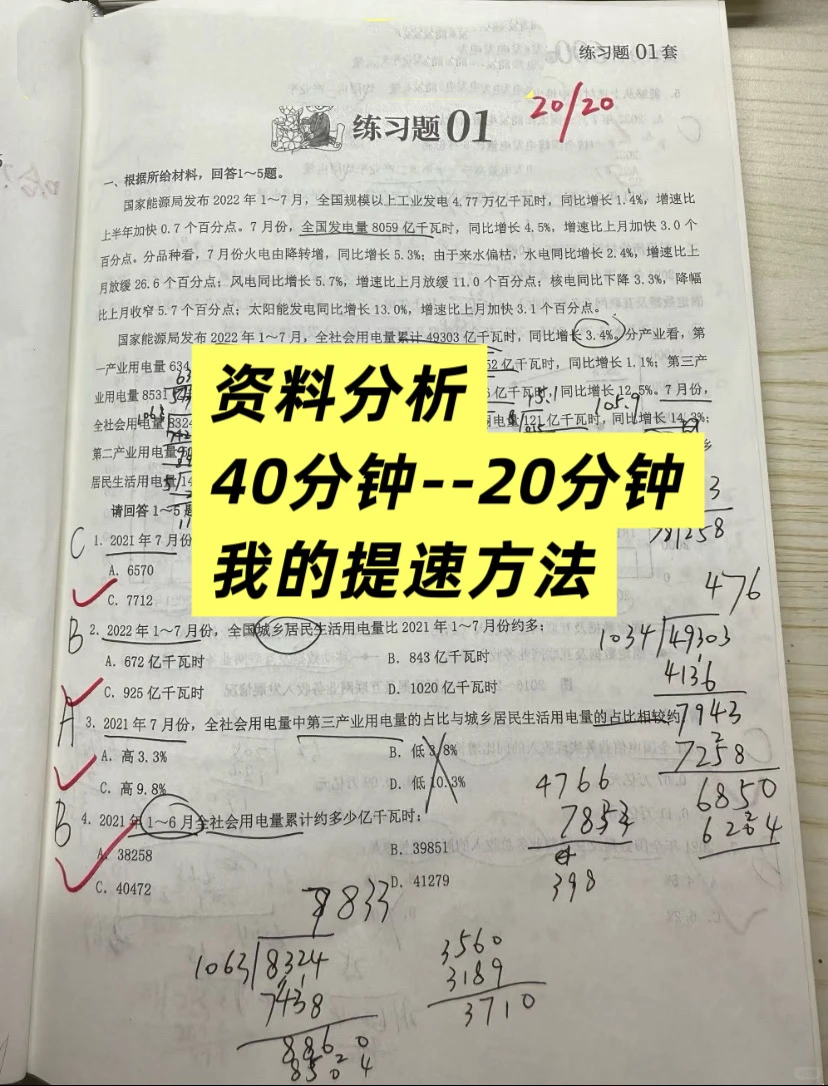 练习题 01套
20/20
练习题01
一、根据所给材料，回答1～5题。
国家能源局发布 2022 年 1～7 月，全国规模以上工业发电 4.77 万亿千瓦时，同比增长 1.4%，增速比
上半年加快 0.7 个百分点。7 月份，全国发电量 8059 亿千瓦时，同比增长 4.5%，增速比上月加快 3.0 个
百分点。分品种看，7 月份火电由降转增，同比增长 5.3%；由于来水偏枯，水电同比增长 2.4%，增速比上
月放缓 26.6 个百分点；风电同比增长 5.7%，增速比上月放缓 11.0 个百分点；核电同比下降 3.3%，降幅
比上月收窄 5.7 个百分点；太阳能发电同比增长 13.0%，增速比上月加快 3.1 个百分点。
国家能源局发布 2022 年 1～7 月，全社会用电量累计 49303 亿千瓦时，同比增长 3.4%。分产业看，第
一产业用电量 634 52 亿千瓦时，同比增长 1.1%；第三产
业用电量 8531 亿千瓦时，同比增长 12.5%。7 月份，
15.1 105.9
1063
全社会用电量 8324 用电量 121 亿千瓦时，同比增长 14.3%；
第二产业用电量
居民生活用电量
资料分析
40分钟--20分钟
我的提速方法
请回答 1～5 题
C 1. 2021 年 7 月份
A. 6570
C. 7712
78258
B 2. 2022 年 1～7 月份，全国城乡居民生活用电量比 2021 年 1～7 月份约多：
A. 672 亿千瓦时 B. 843 亿千瓦时
C. 925 亿千瓦时 D. 1020 亿千瓦时
A 3. 2021 年 7 月份，全社会用电量中第三产业用电量的占比与城乡居民生活用电量的占比相较约
A. 高 3.3% B. 低 3.8%
C. 高 9.8% D. 低 10.3%
B 4. 2021 年 1～6 月全社会用电量累计约多少亿千瓦时：
A. 38258 B. 39851
C. 40472 D. 41279
476
1034 49303
4136
7943
7258
6850
6204
4766
398
7833
1063 8324
7438
8860
8504
3560
3189
3710